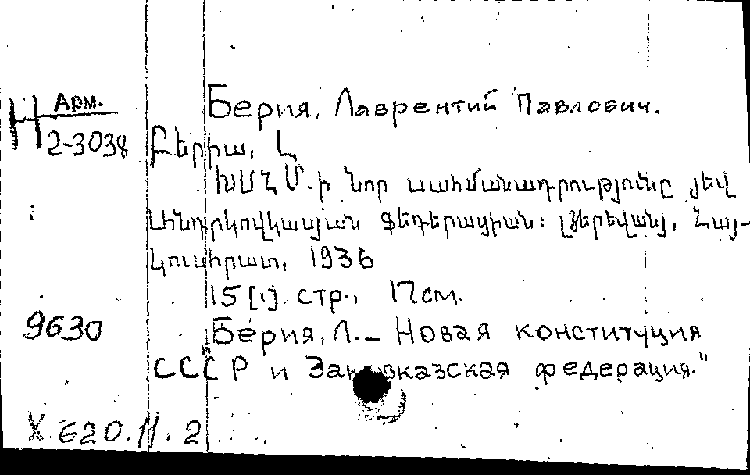 Арм.
Н 2-3038
Берия, Лаврентий Павлович.
Բերիա, Լ
ԽՍՀՄ-ի նոր սահմանադրությունը յեվ
Անդրկովկասյան Ֆեդերացիան: [Յերեվան], Հայ-
կուսհրատ, 1936
15 [1] стр., 17 см.
9630
Берия, Л. — Новая конституция
СССР и Закавказская федерация."
X.620.11.2